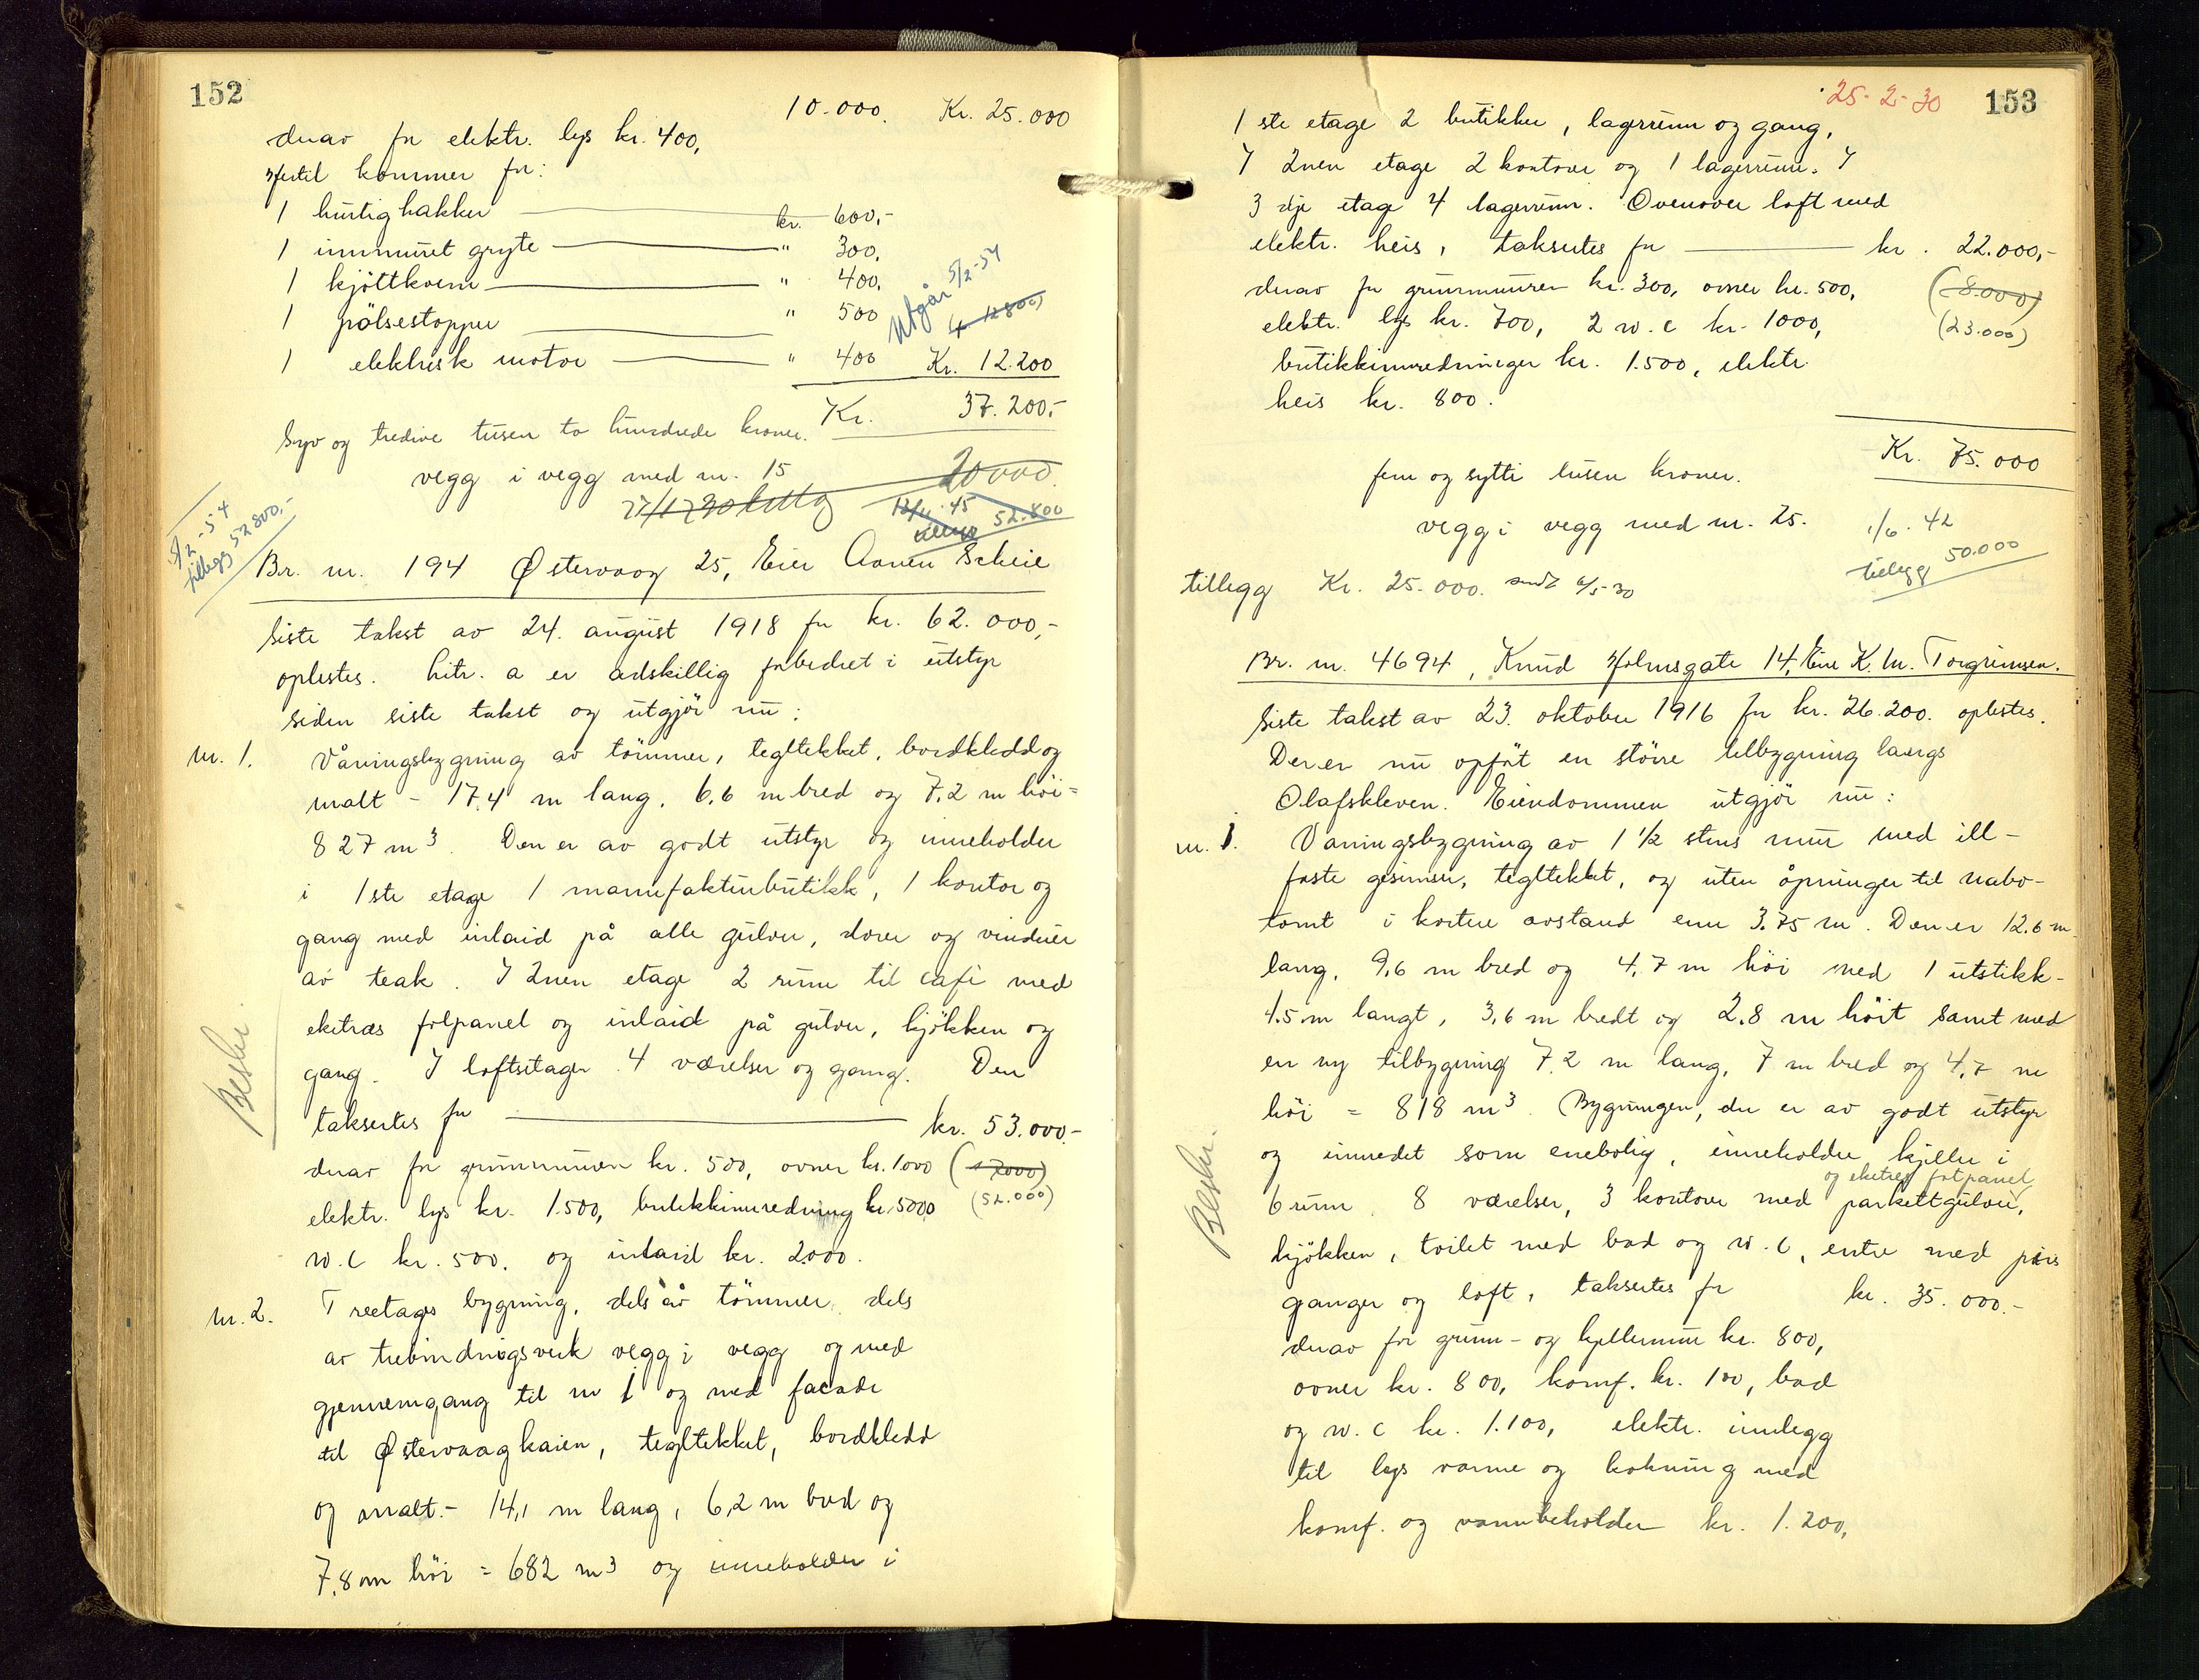 152
10.000. Kr. 25.000
derav for elektr. lys kr. 400,
Hertil kommer for:
1 hurtighakker kr. 600,-
1 innmuret gryte " 300,
1 kjöttkvern " 400,
1 pölsestopper " 500
1 elektrisk motor " 400 Kr. 12.200
Utgår 5/2-54
Kr. 37.200,-
Syv og tredive tusen to hundrede kroner.
vegg i vegg med nr. 15
20000.
52.800
5/2-54
tillegg 52800,-
Br. nr. 194 Østervaag 25, Eier Aanen Scheie
Siste takst av 24. august 1918 for kr. 62.000,-
oplestes. Litr. a er adskillig forbedret i utstyr
siden siste takst og utgjör nu:
nr. 1. Våningsbygning av tömmer, tegltekket, bordkledd og
malt - 17,4 m lang, 6,6 m bred og 7,2 m höi =
827 m³. Den er av godt utstyr og inneholder
i 1ste etage 1 manufakturbutikk, 1 kontor og
gang med inlaid på alle gulver, dorer og vinduer
av teak. I 2nen etage 2 rum til café med
eketræs fotpanel og inlaid på gulver, kjökken og
gang. I loftsetagen 4 værelser og gang. Den
takseres for kr. 53.000.-
Beskr.
derav for grunnmuren kr. 500, ovner kr. 1000 (17000)
elektr. lys kr. 1.500, butikkinnredning kr. 5000 (52.000)
w.c kr. 500. og inlaid kr. 2000.
nr. 2. Treetages bygning, dels av tömmer, dels
av trebindingsverk vegg i vegg og med
gjennemgang til nr 1 og med facade
til Østervaagkaien, tegltekket, bordkledd
og malt.- 14,1 m lang, 6,2 m bred og
7,8 m höi = 682 m3 og inneholder i
25-2-30 153
1 ste etage 2 butikker, lagerrum og gang,
I 2nen etage 2 kontorer og 1 lagerrum. I
3 dje etage 4 lagerrum. Ovenover loft med
elektr. heis, takseres for kr. 22.000,-
derav for grunnmuren kr. 300, ovner kr. 500, (8.000)
elektr. lys kr. 700, 2 w.c kr. 1000, (23.000)
butikkinnredninger kr. 1.500, elektr.
heis kr. 800.
Kr. 75.000
fem og sytti tusen kroner.
vegg i vegg med nr. 25.
1/6. 42
tillegg 50.000
tillegg Kr. 25.000. sendt 6/5-30
Br. nr. 4694, Knud Holmsgate 14, Eier K. M. Torgrimsen.
Siste takst av 23. oktober 1916 for kr. 26.200. oplestes.
Der er nu opfört en större tilbygning langs
Olafskleven. Eiendommen utgjör nu:
nr. 1. Våningsbygning av 1 1/2 stens mur med ill-
faste gesimser, tegltekket, og uten åpninger til nabo-
tomt i kortere avstand enn 3.75 m. Den er 12.6 m
lang, 9,6 m bred og 4,7 m höi med 1 utstikk-
4.5 m langt, 3,6 m bredt og 2.8 m höit samt med
en ny tilbygning 7.2 m lang, 7 m bred og 4,7 m
höi = 818 m³. Bygningen, der er av godt utstyr
og innredet som enebolig, inneholder kjeller i
og eketres fotpanel
6 rum 8 værelser, 3 kontorer med parkettgulver,
Beskr.
kjökken, toilet med bad og w.c, entre med pøis
ganger og loft, takseres for kr. 35.000.-
derav for grunn- og kjellermur kr. 800,
ovner kr. 800, komf. kr. 100, bad
og w.c kr. 1.100, elektr. innlegg
til lys varme og kokning med
komf. og varmbeholder kr. 1.200,